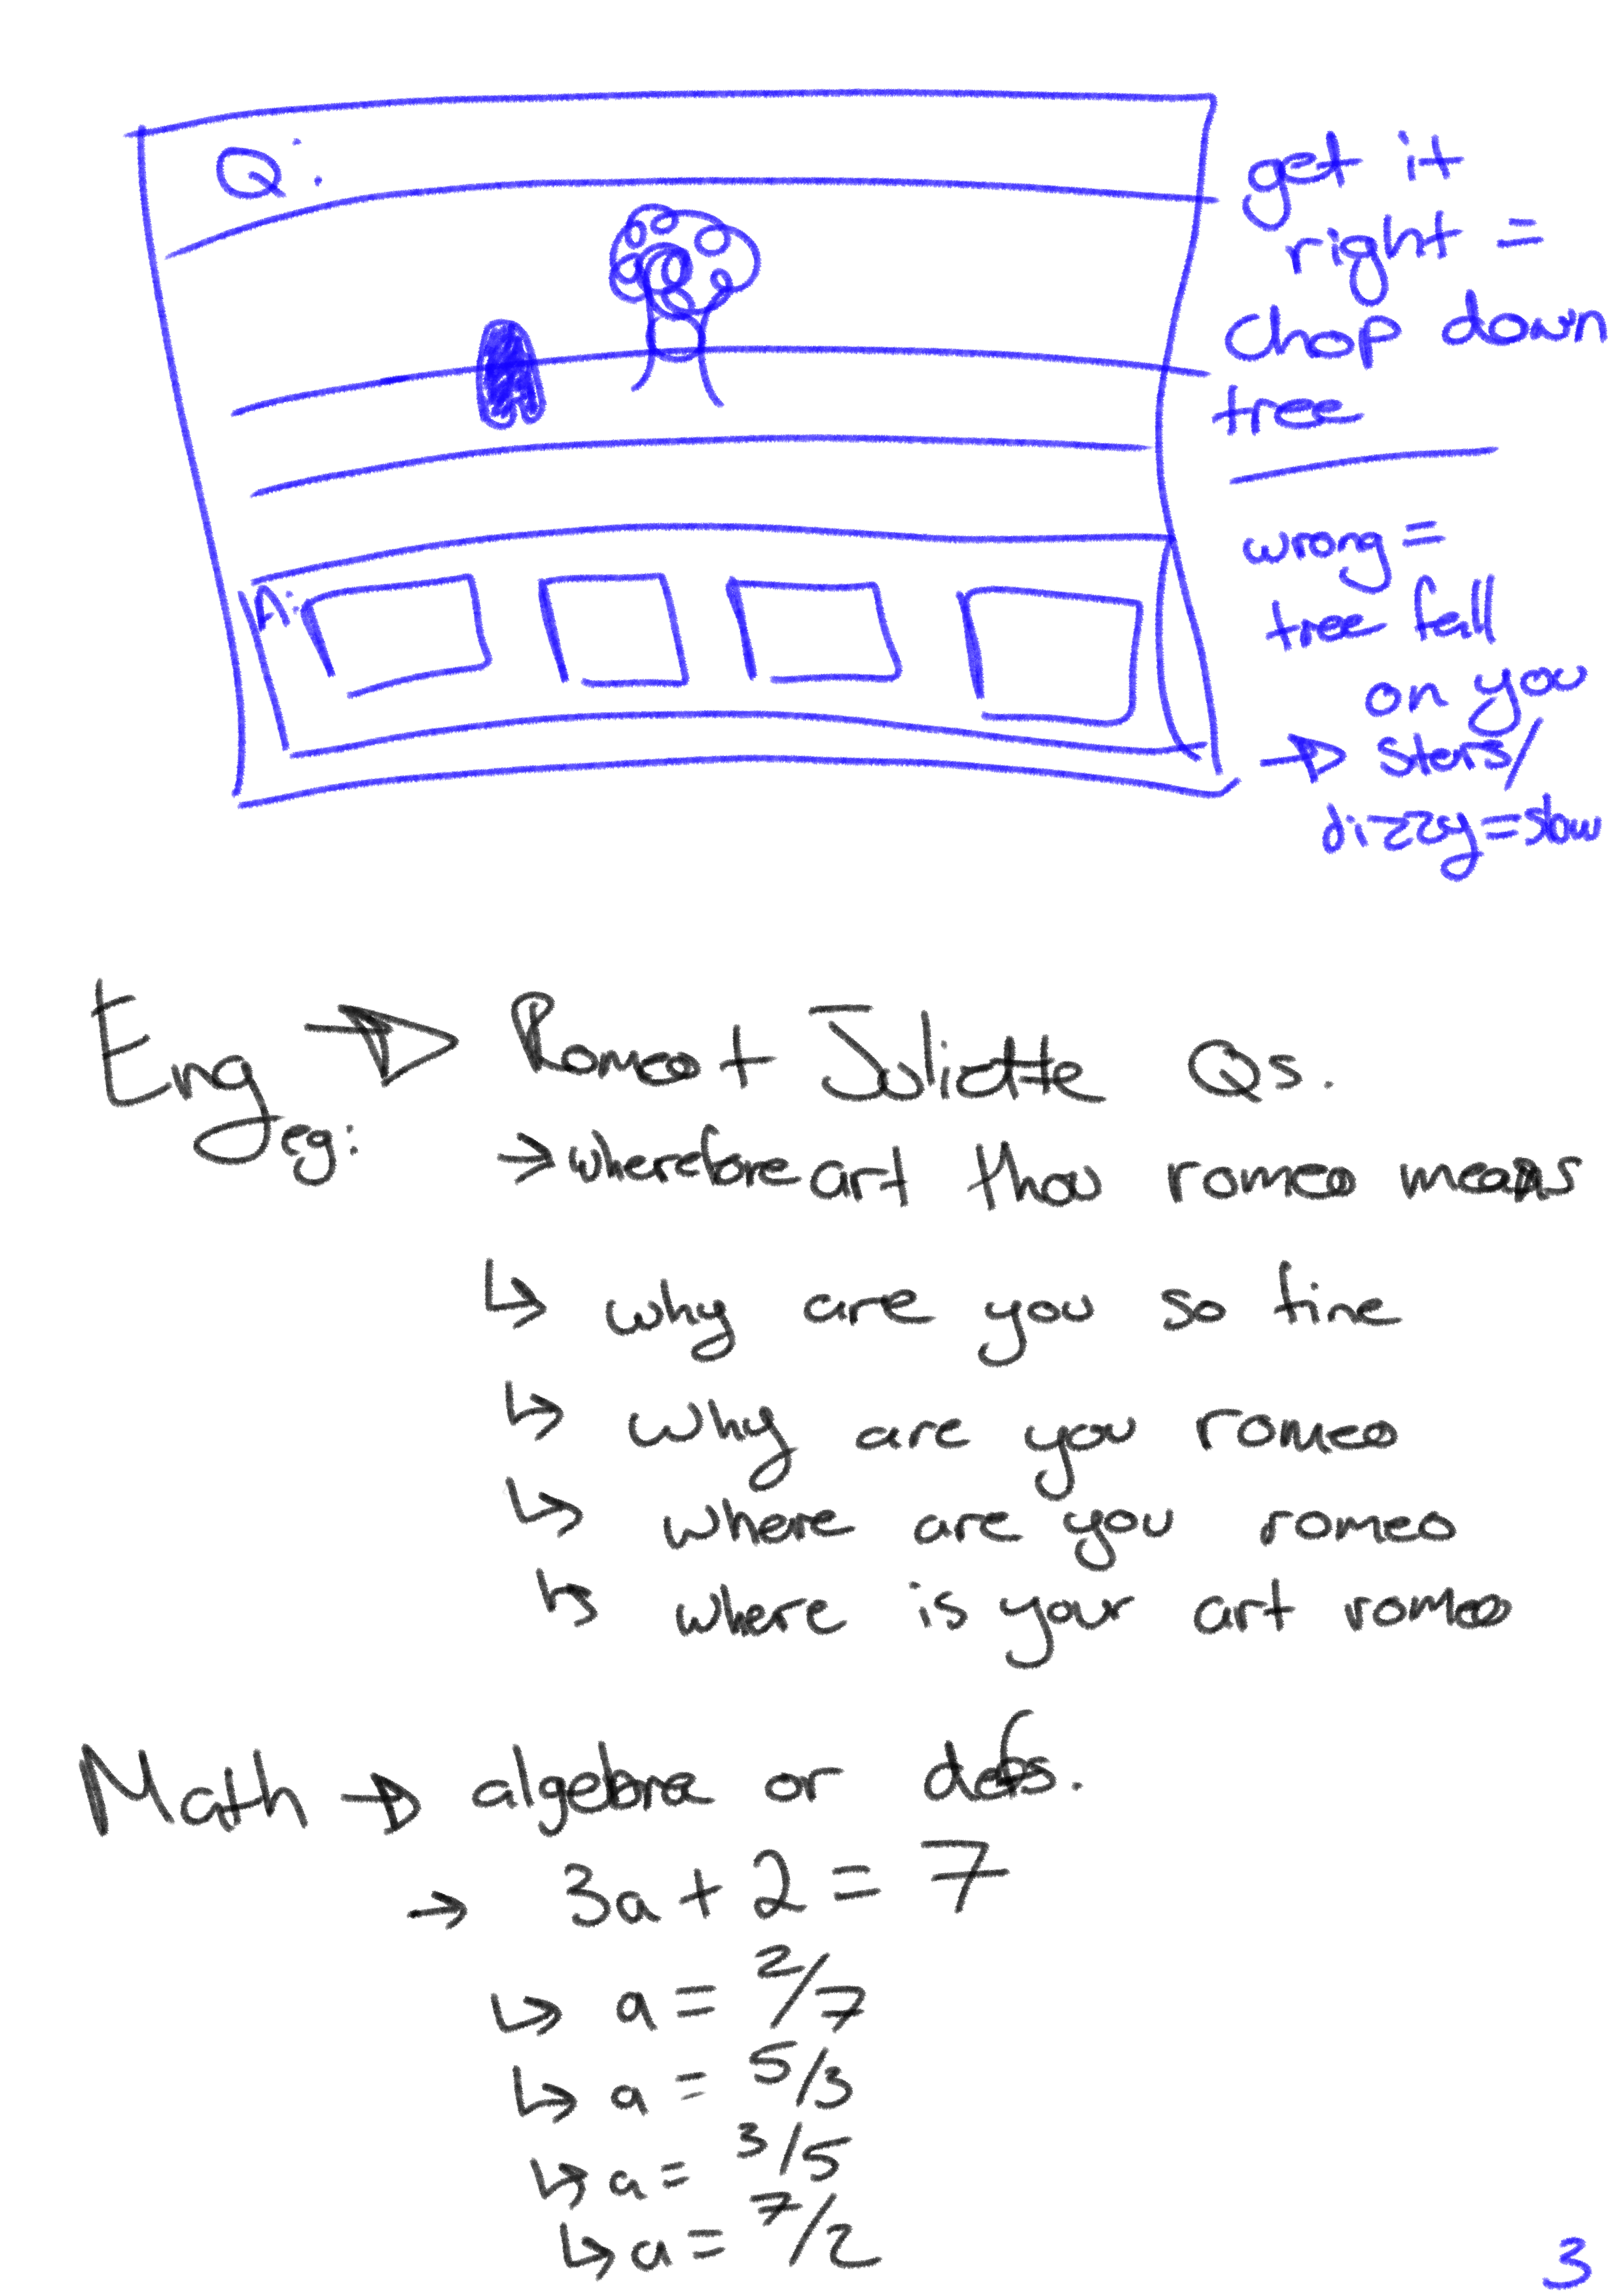 Q:
get it
right =
chop down
tree
A:
wrong =
tree fall
on you
→ stars/
dizzy = slow
Eng → Romeo + Juliette Qs.
eg: → wherefore art thou romeo means
↳ why are you so fine
↳ why are you romeo
↳ where are you romeo
↳ where is your art romeo
Math → algebra or defs.
→ 3a + 2 = 7
↳ a = 2/7
↳ a = 5/3
↳ a = 3/5
↳ a = 7/2
3